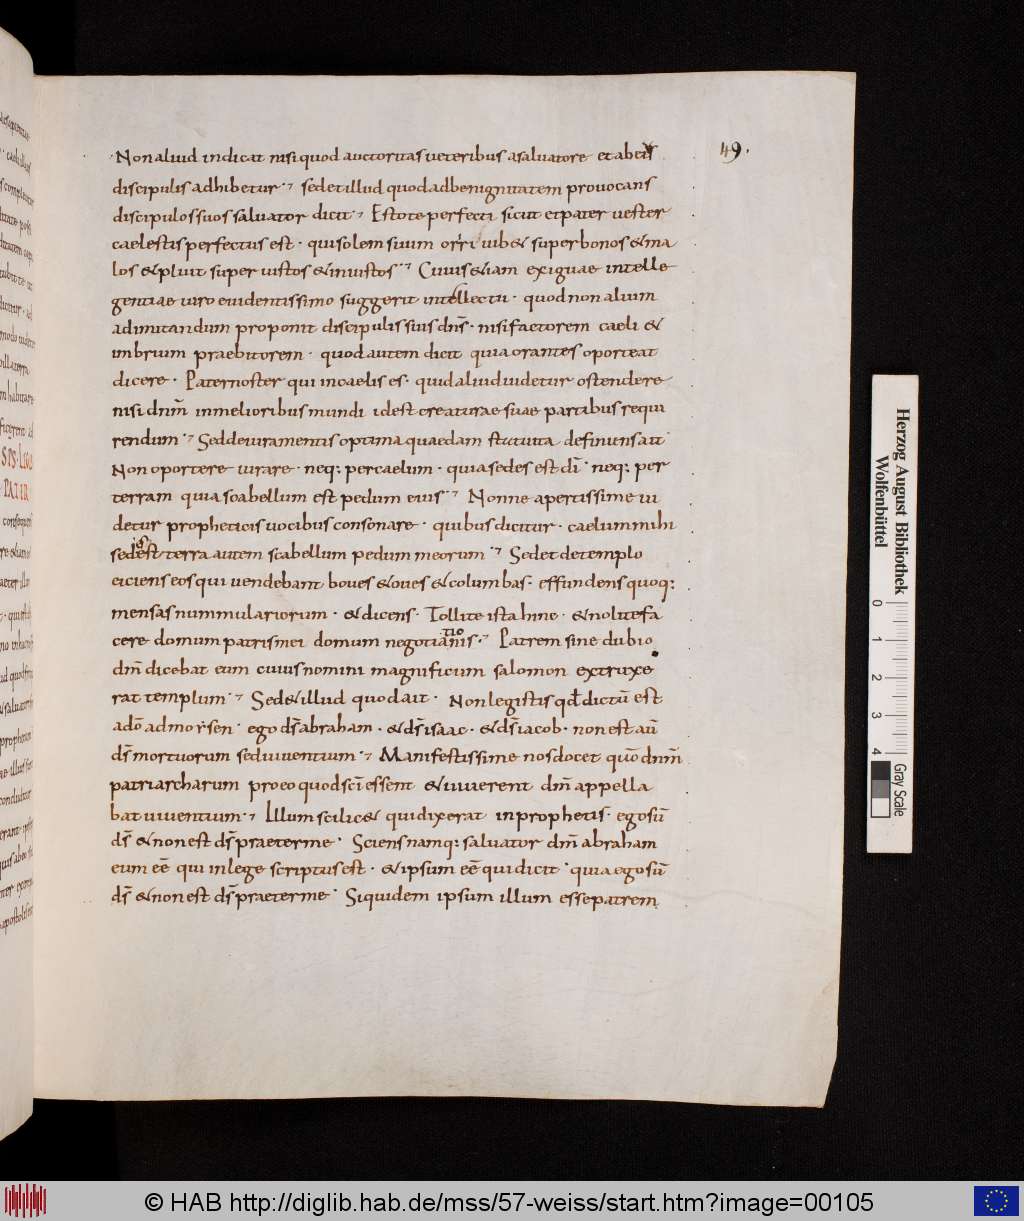 49.
Non aliud indicat nisi quod auctoritas veteribus a salvatore et ab eis
discipulis adhibetur · sed et illud quod ad benignitatem provocans
discipulos suos salvator dicit · Estote perfecti sicut et pater vester
caelestis perfectus est · qui solem suum oriri iub& super bonos & ma
los & pluit super iustos & iniustos · Cuius &iam exiguae intelle
gentiae viro evidentissimo suggerit intellectu · quod non alium
ad imitandum proponit discipulis suis dn̄s · nisi factorem caeli &
imbrium praebitorem · quod autem dicit quia orantes oporteat
dicere · Pater noster qui in caelis es · quid aliud videtur ostendere
nisi dn̄m in melioribus mundi id est creaturae suae partibus requi
rendum · Sed de iuramentis optima quaedam statuta definiens ait
Non oportere iurare · neq: per caelum · quia sedes est dī · neq: per
terram quia scabellum est pedum eius · Nonne apertissime vi
detur propheticis vocibus consonare · quibus dicitur · caelum mihi
sedes est terra autem scabellum pedum meorum · Sed et de templo
eiciens eos qui vendebant boves & oves & columbas · effundens quoq:
mensas nummulariorum · & dicens · Tollite ista hinc · & nolite fa
cere domum patris mei domum negotiationis · Patrem sine dubio
dm̄ dicebat eum cuius nomini magnificum salomon extruxe
rat templum · Sed & illud quod ait · Non legistis qđ dictū est
a dō ad moysen · ego ds̄ abraham · & ds̄ isaac · & ds̄ iacob · non est aū
ds̄ mortuorum sed viventium · Manifestissime nos docet quō dn̄m
patriarcharum pro eo quod scī essent & viverent dm̄ appella
bat viventium · Illum scilic& qui dixerat in prophetis · ego sū
ds̄ & non est ds̄ praeter me · Sciens namq: salvator dm̄ abraham
eum eē qui in lege scriptus est · & ipsum eē qui dicit · quia ego sū
ds̄ & non est ds̄ praeter me · Siquidem ipsum illum esse patrem
Herzog August Bibliothek
Wolfenbüttel
0 1 2 3 4
Gray Scale
© HAB http://diglib.hab.de/mss/57-weiss/start.htm?image=00105